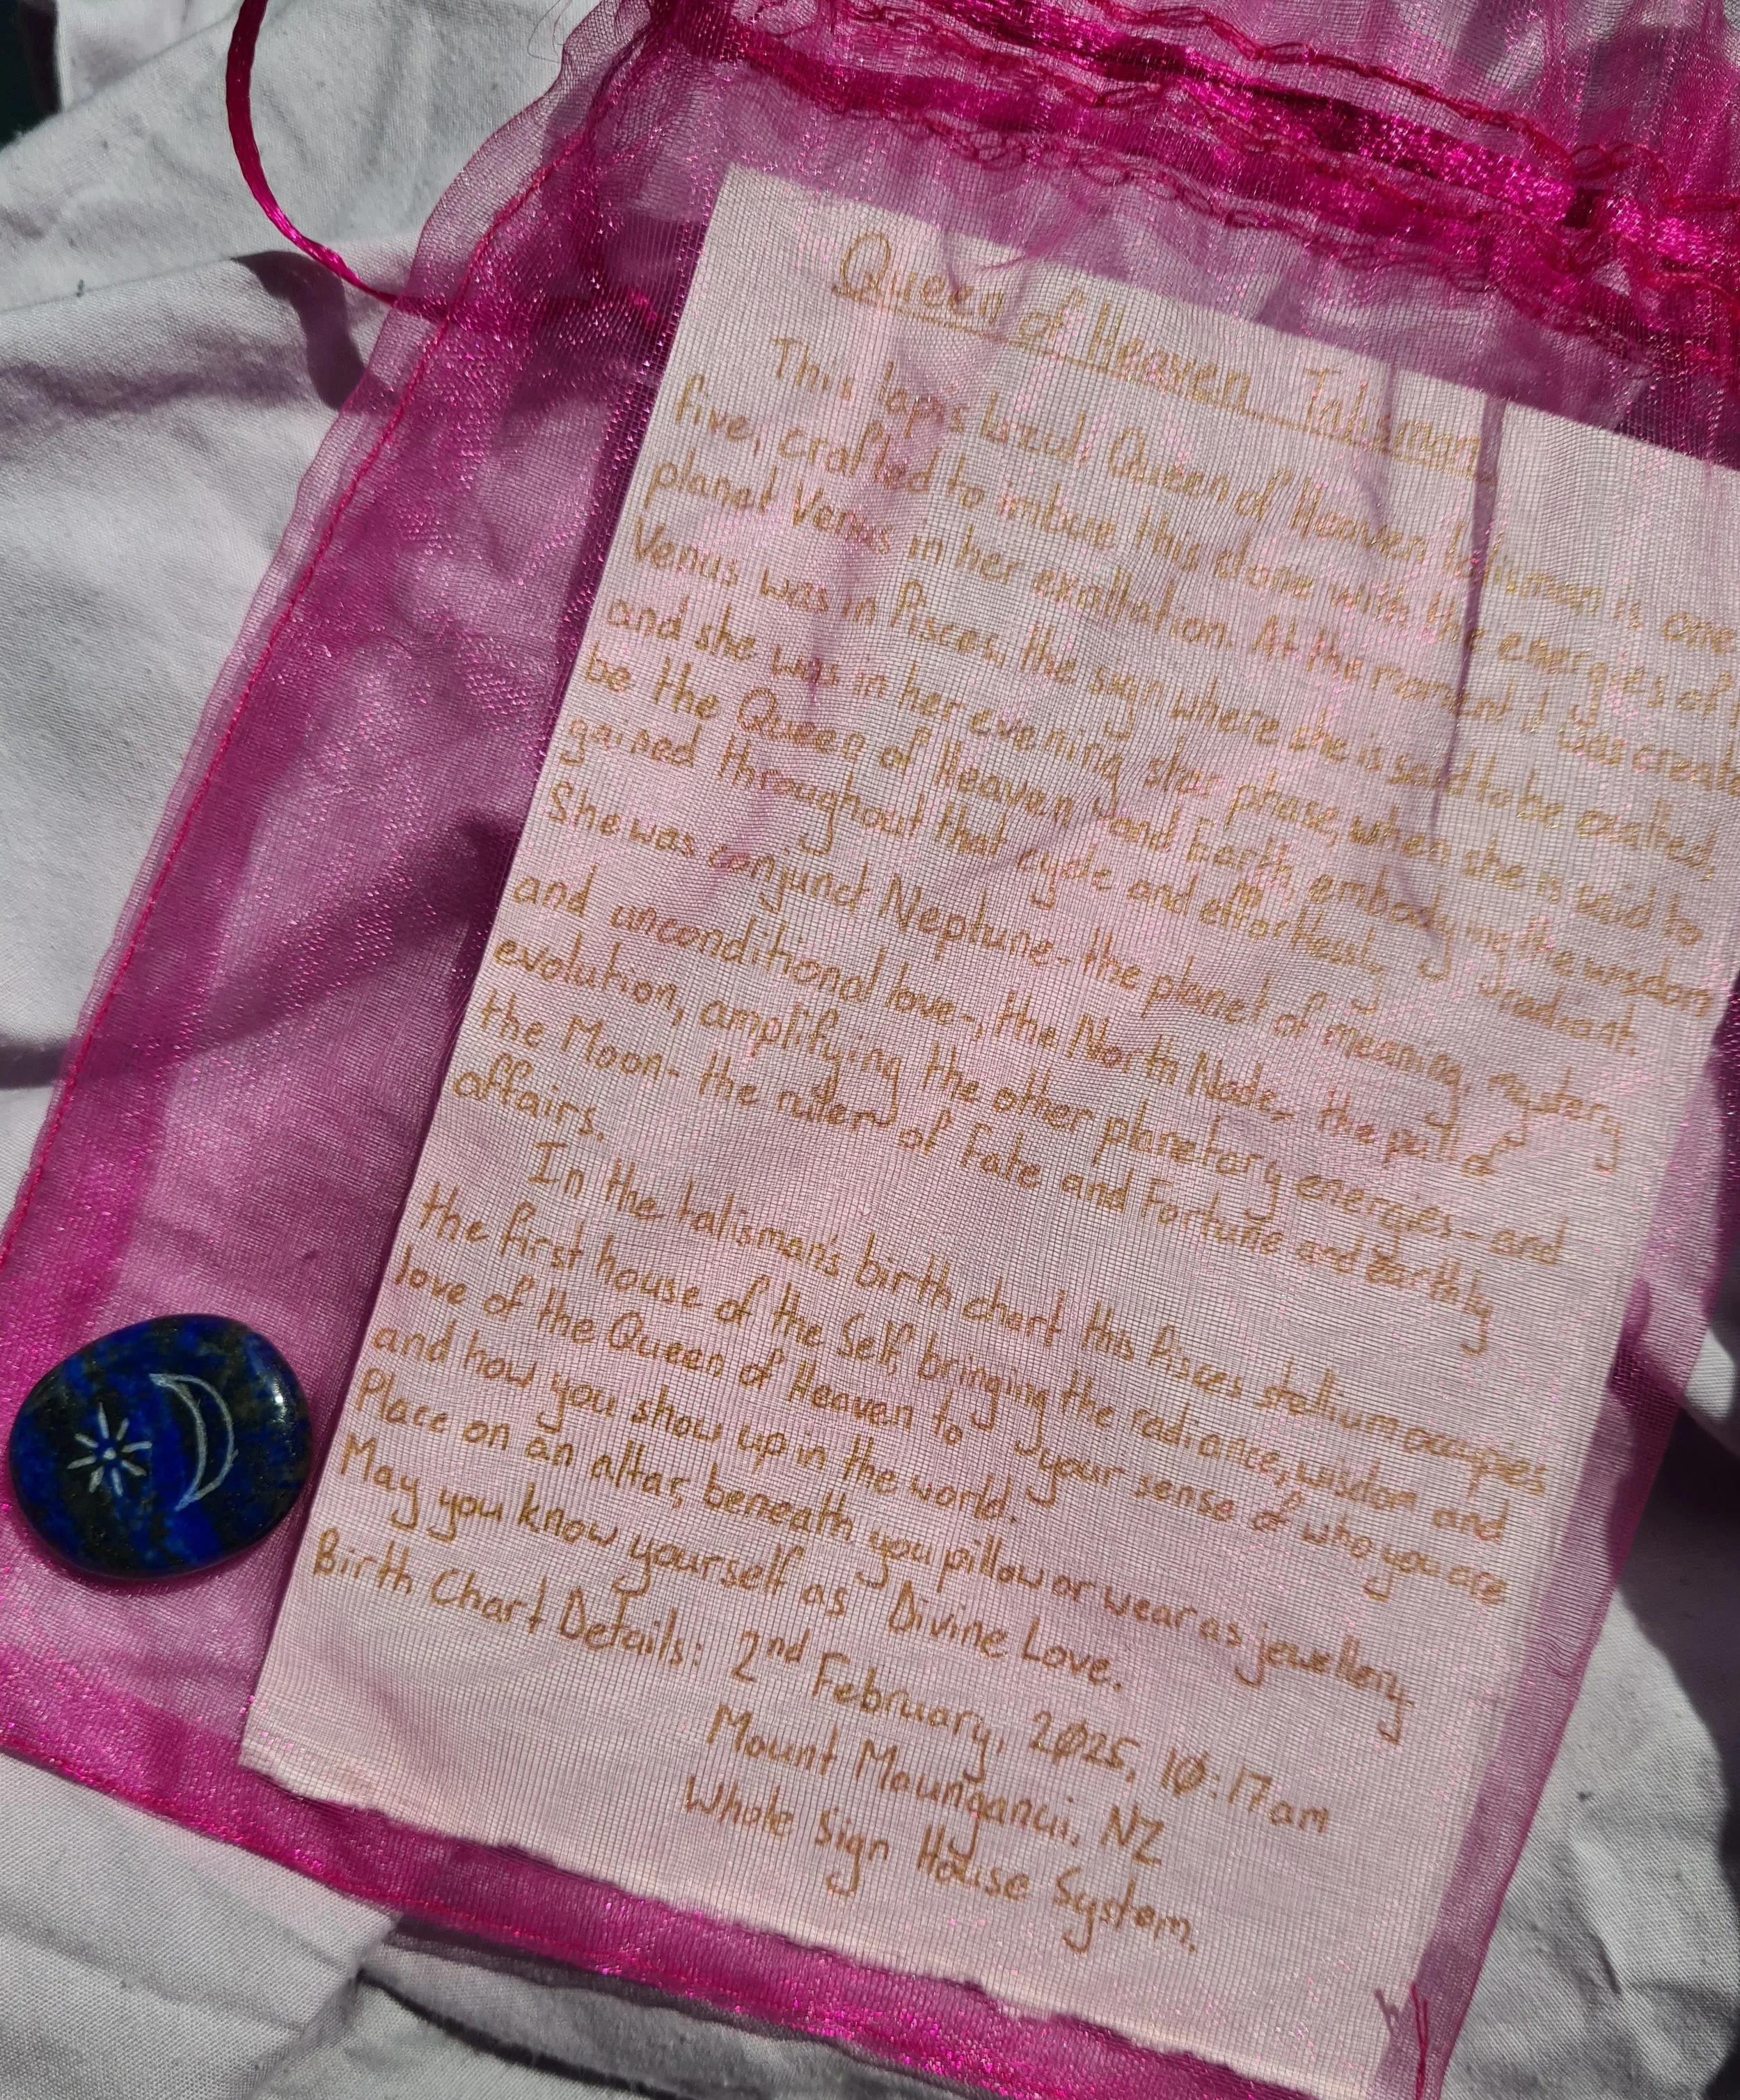 Queen of Heaven Talisman
This lapis lazuli Queen of Heaven talisman is one
five, crafted to imbue this stone with the energies of
planet Venus in her exaltation. At the moment it was create
Venus was in Pisces, the sign where she is said to be exalted,
and she was in her evening star phase, when she is said to
be the Queen of Heaven and Earth, embodying the wisdom
gained throughout that cycle and effortlessly radiant.
She was conjunct Neptune- the planet of meaning, mystery
and unconditional love-, the North Node, the pull of
evolution, amplifying the other planetary energies- and
the Moon- the ruler of Fate and Fortune and Earthly
affairs.
In the talisman's birth chart this Pisces stellium occupies
the first house of the Self, bringing the radiance, wisdom and
love of the Queen of Heaven to your sense of who you are
and how you show up in the world.
Place on an altar, beneath you pillow or wear as jewellery.
May you know yourself as Divine Love.
Birth Chart Details: 2nd February, 2025, 10:17am
Mount Maunganui, NZ
Whole Sign House System.